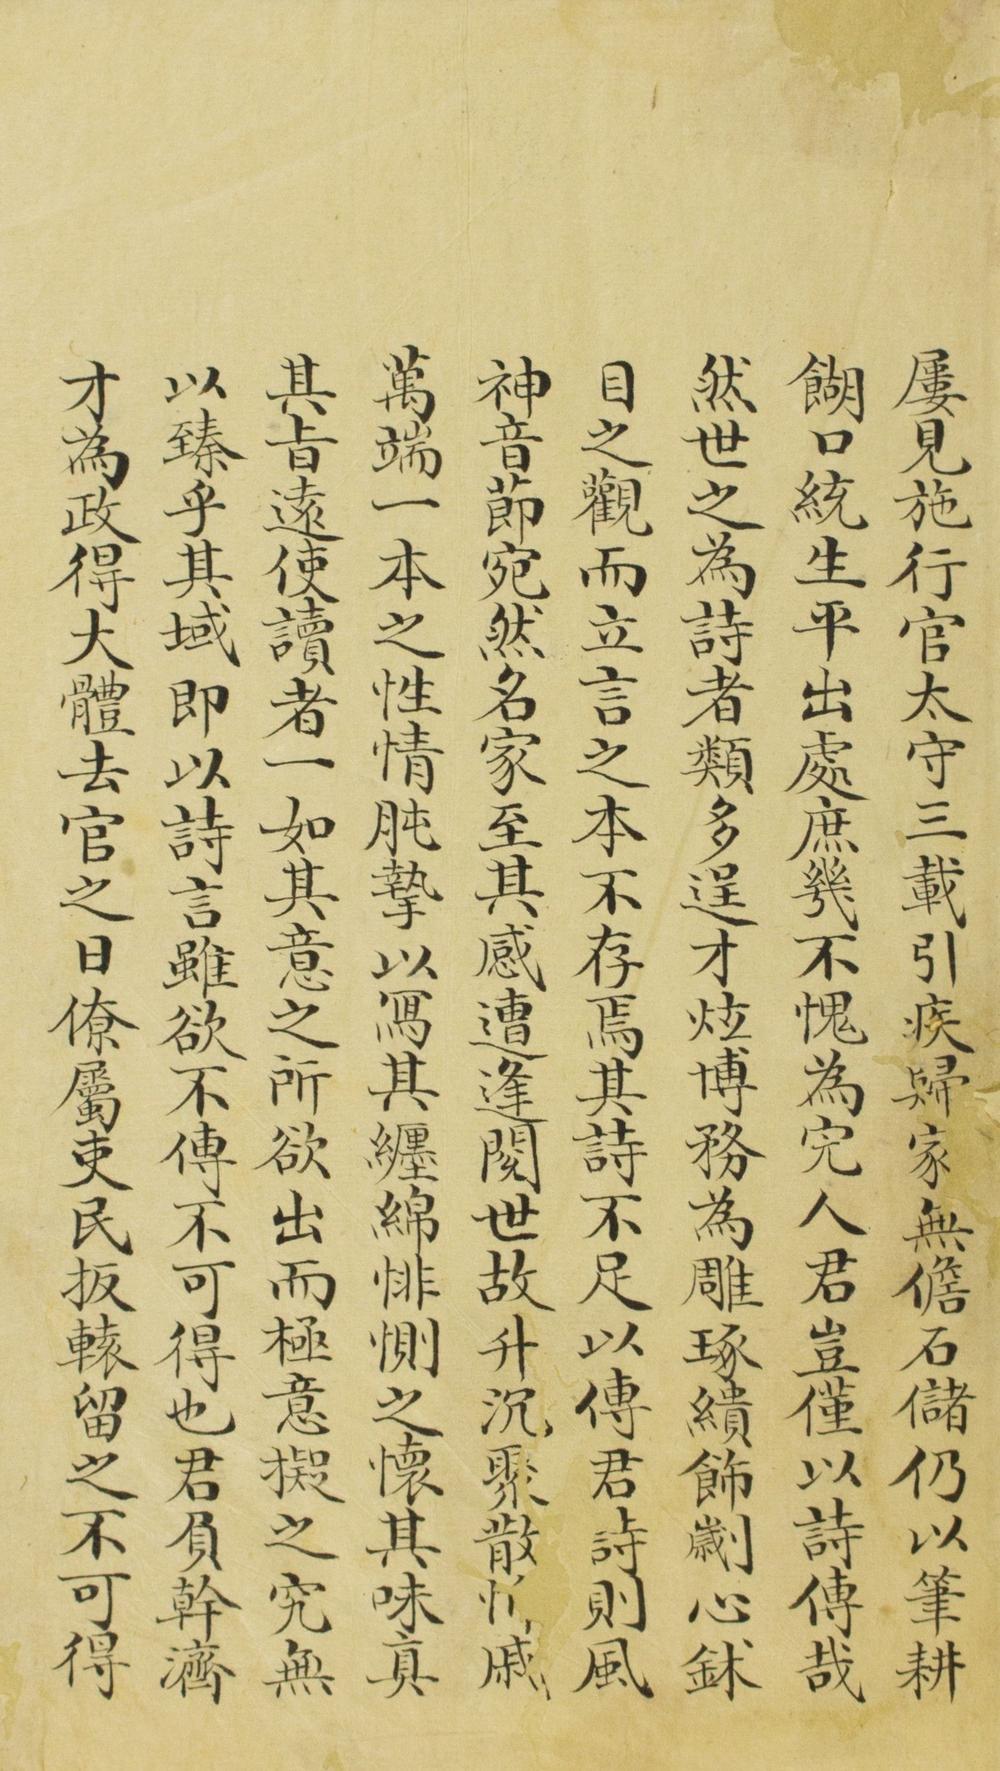 屢見施行官太守三載引疾歸家無儋石儲仍以筆耕
餬口統生平出處庶幾不愧為完人君豈僅以詩傳哉
然世之為詩者類多逞才炫博務為雕琢繢飾劌心鉥
目之觀而立言之本不存焉其詩不足以傳君詩則風
神音節宛然名家至其感遭逢閱世故升沉聚散戚
萬端一本之性情肫摯以寫其纏綿悱惻之懷其味真
其旨遠使讀者一如其意之所欲出而極意擬之究無
以臻乎其域即以詩言雖欲不傳不可得也君負幹濟
才為政得大體去官之日僚屬吏民扳轅留之不可得